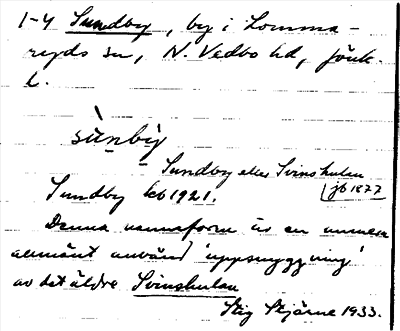 1-4 Sundby, by i Lomma-
ryds sn, N. Vedbo hd, Jönk.
L.
sùnbìy
Sundby eller Svinshulan
jb 1877
Sundby kb 1921.
Denna namnform är en numera
allmänt använd 'uppsnyggning'
av det äldre Svinshulan
Stig Stjärne 1933.